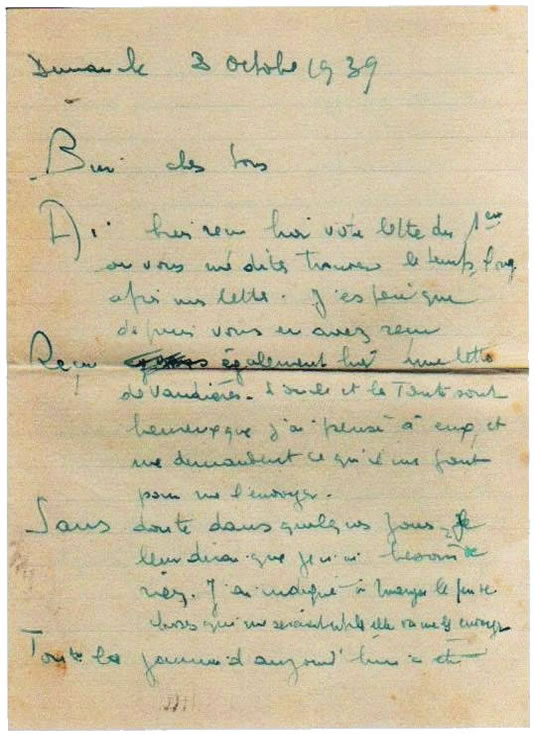 Dimanche 8 Octobre 1939
Bien chers tous
Ai bien reçu hier votre lettre du 1er
ou vous me dites trouver le temps long
après mes lettres. J'espère que
depuis vous en avez reçu
Reçu également hier une lettre
de Vandières. L'oncle et la Tante sont
heureux que j'ai pensé à eux, et
me demandent ce qu'il me faut
pour me l'envoyer.
Sans doute dans quelques jours, je
leur dirai que je n'ai besoin de
rien. J'ai indiqué à le peu de
choses qui me seraient utiles elle va me les envoyer
Toute la journée d'aujourd'hui a été